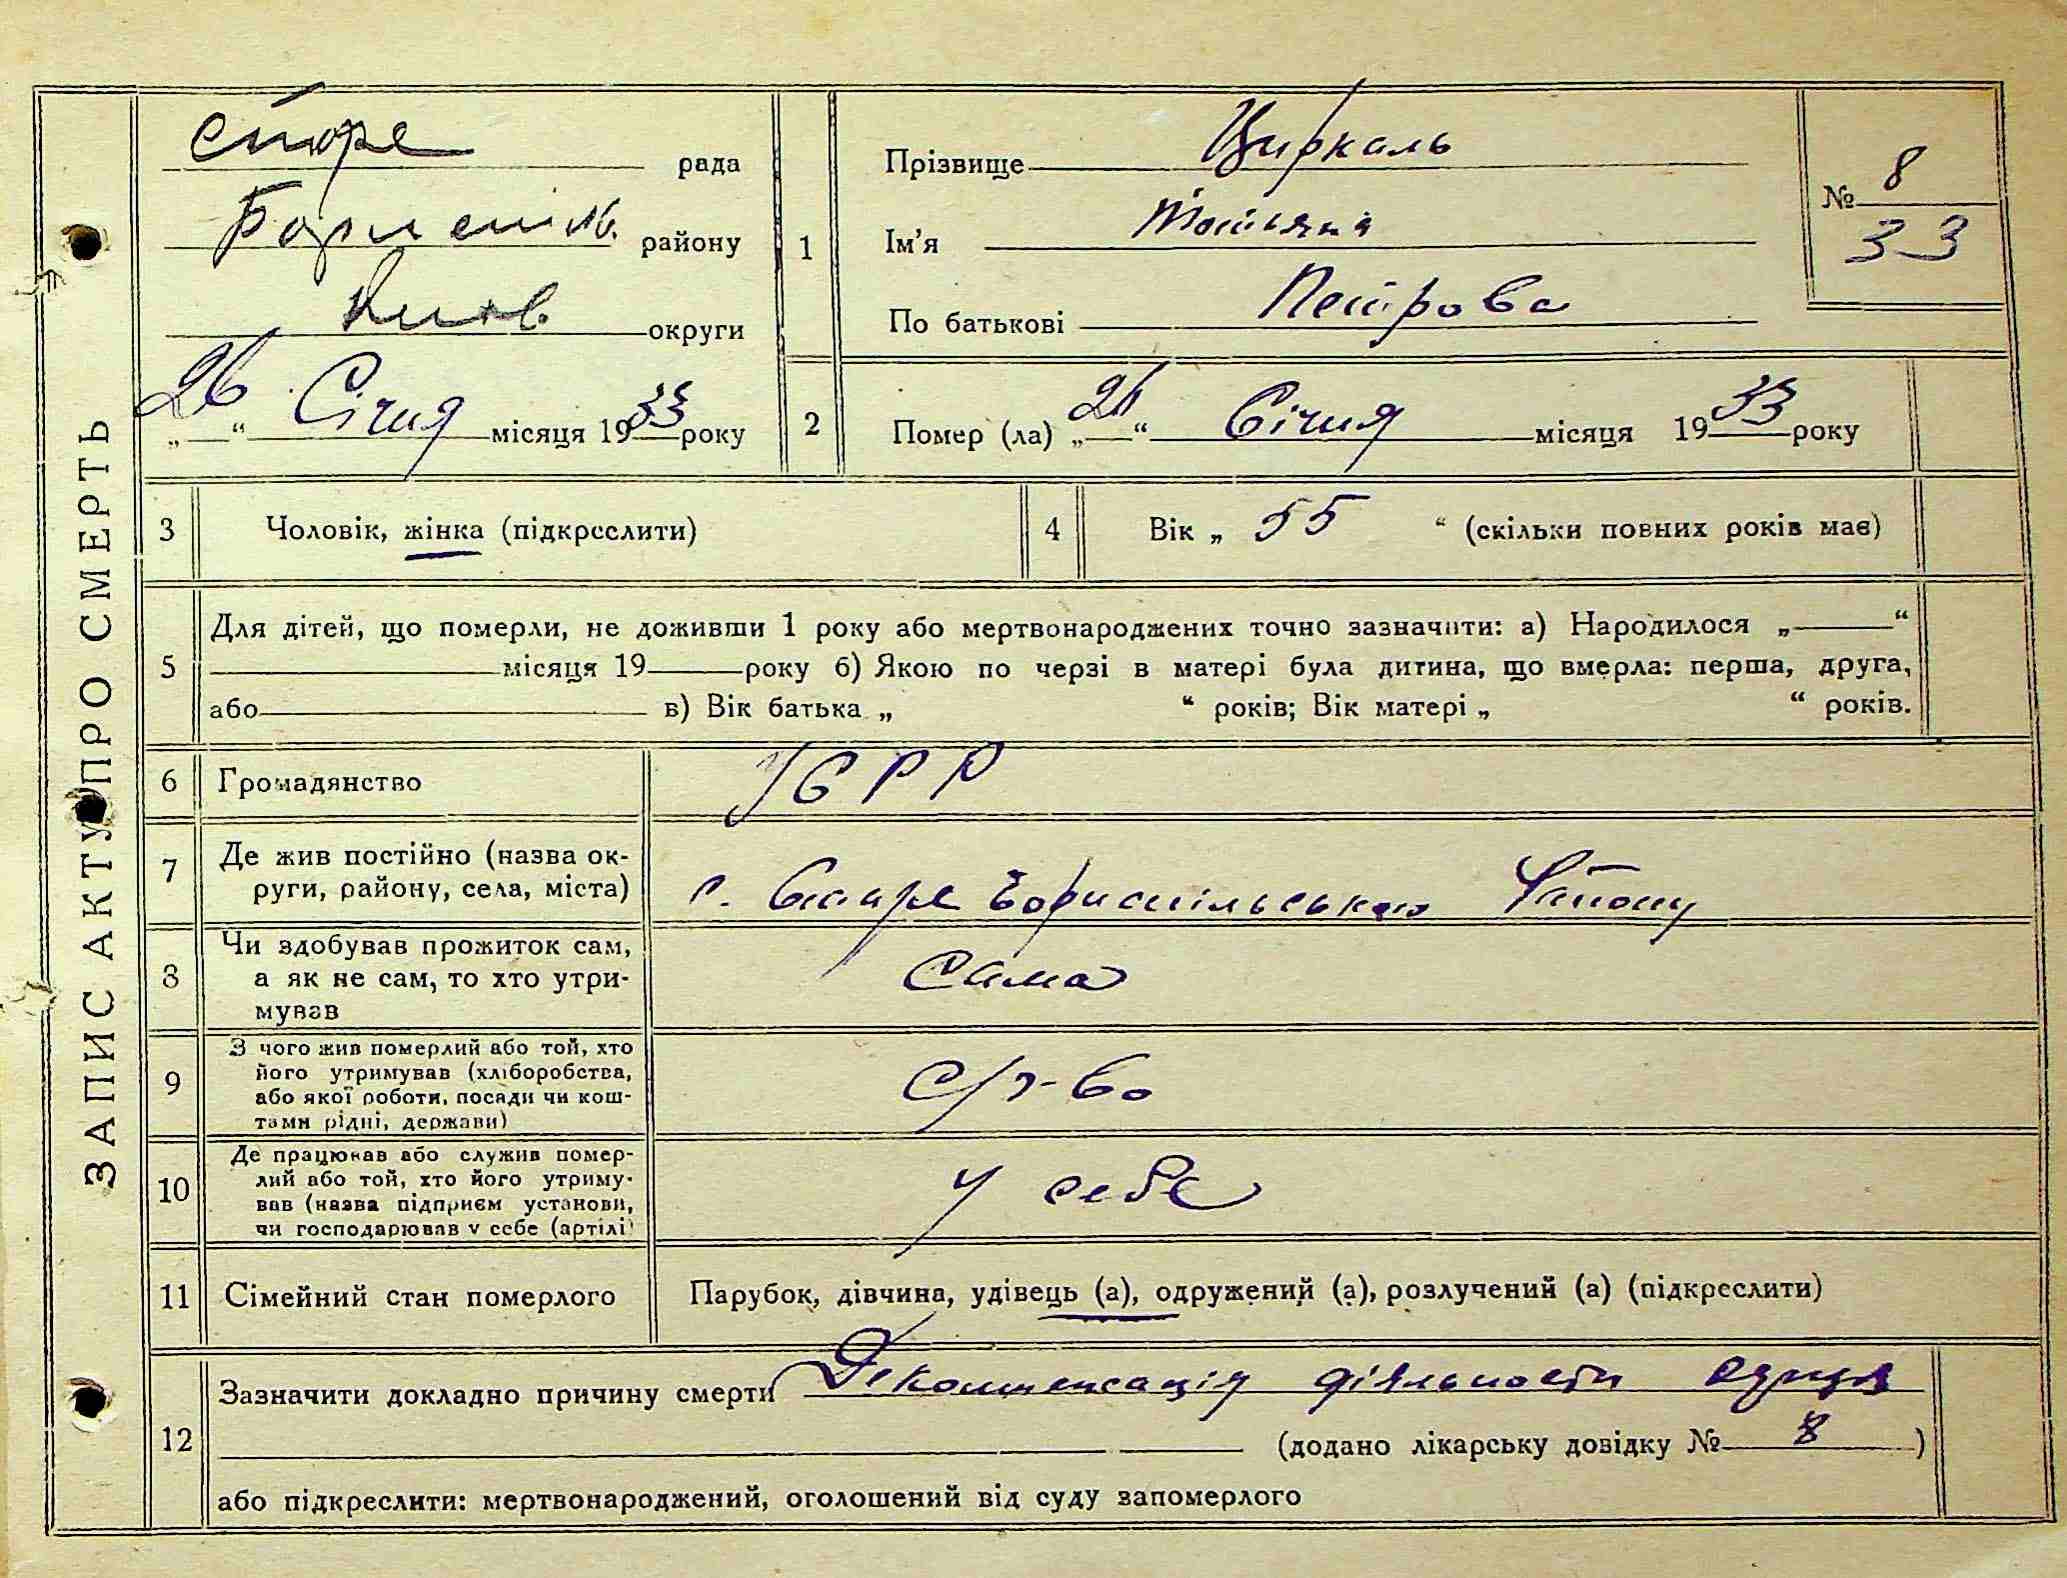 ЗАПИС АКТУ ПРО СМЕРТЬ
Старе рада
района
Київ. округи
26 Січня місяця 1933 року
1
Прізвище Циркаль
Ім'я Тетяна
По батькові Петрова
№ 8
33
2
Помер (ла) „26“ Січня місяця 1933 року
3
Чоловік, жінка (підкреслити)
4
Вік „ 55 “ (скільки повних років має)
5
Для дітей, що померли, не доживши 1 року або мертвонароджених точно зазначити: а) Народилося „ “
місяця 19 року б) Якою по черзі в матері була дитина, що вмерла: перша, друга,
або в) Вік батька „ “ років; Вік матері „ “ років.
6
Громадянство УСРР
7
Де жив постійно (назва ок-
руги, району, села, міста)
с. Старе Бориспільського Району
8
Чи здобував прожиток сам,
а як не сам, то хто утри-
мував
Сама
9
З чого жив померлий або той, хто
його утримував (хліборобства,
або якої роботи, посади чи кош-
тами рідні, держави)
С/г-во
10
Де працював або служив помер-
лий або той, хто його утриму-
вав (назва підприєм установи,
чи господарював у себе (артілі)
У себе
11
Сімейний стан померлого
Парубок, дівчина, удівець (а), одружений (а), розлучений (а) (підкреслити)
12
Зазначити докладно причину смерти Декомпенсація діяльности
(додано лікарську довідку № 8 )
або підкреслити: мертвонароджений, оголошений від суду запомерлого